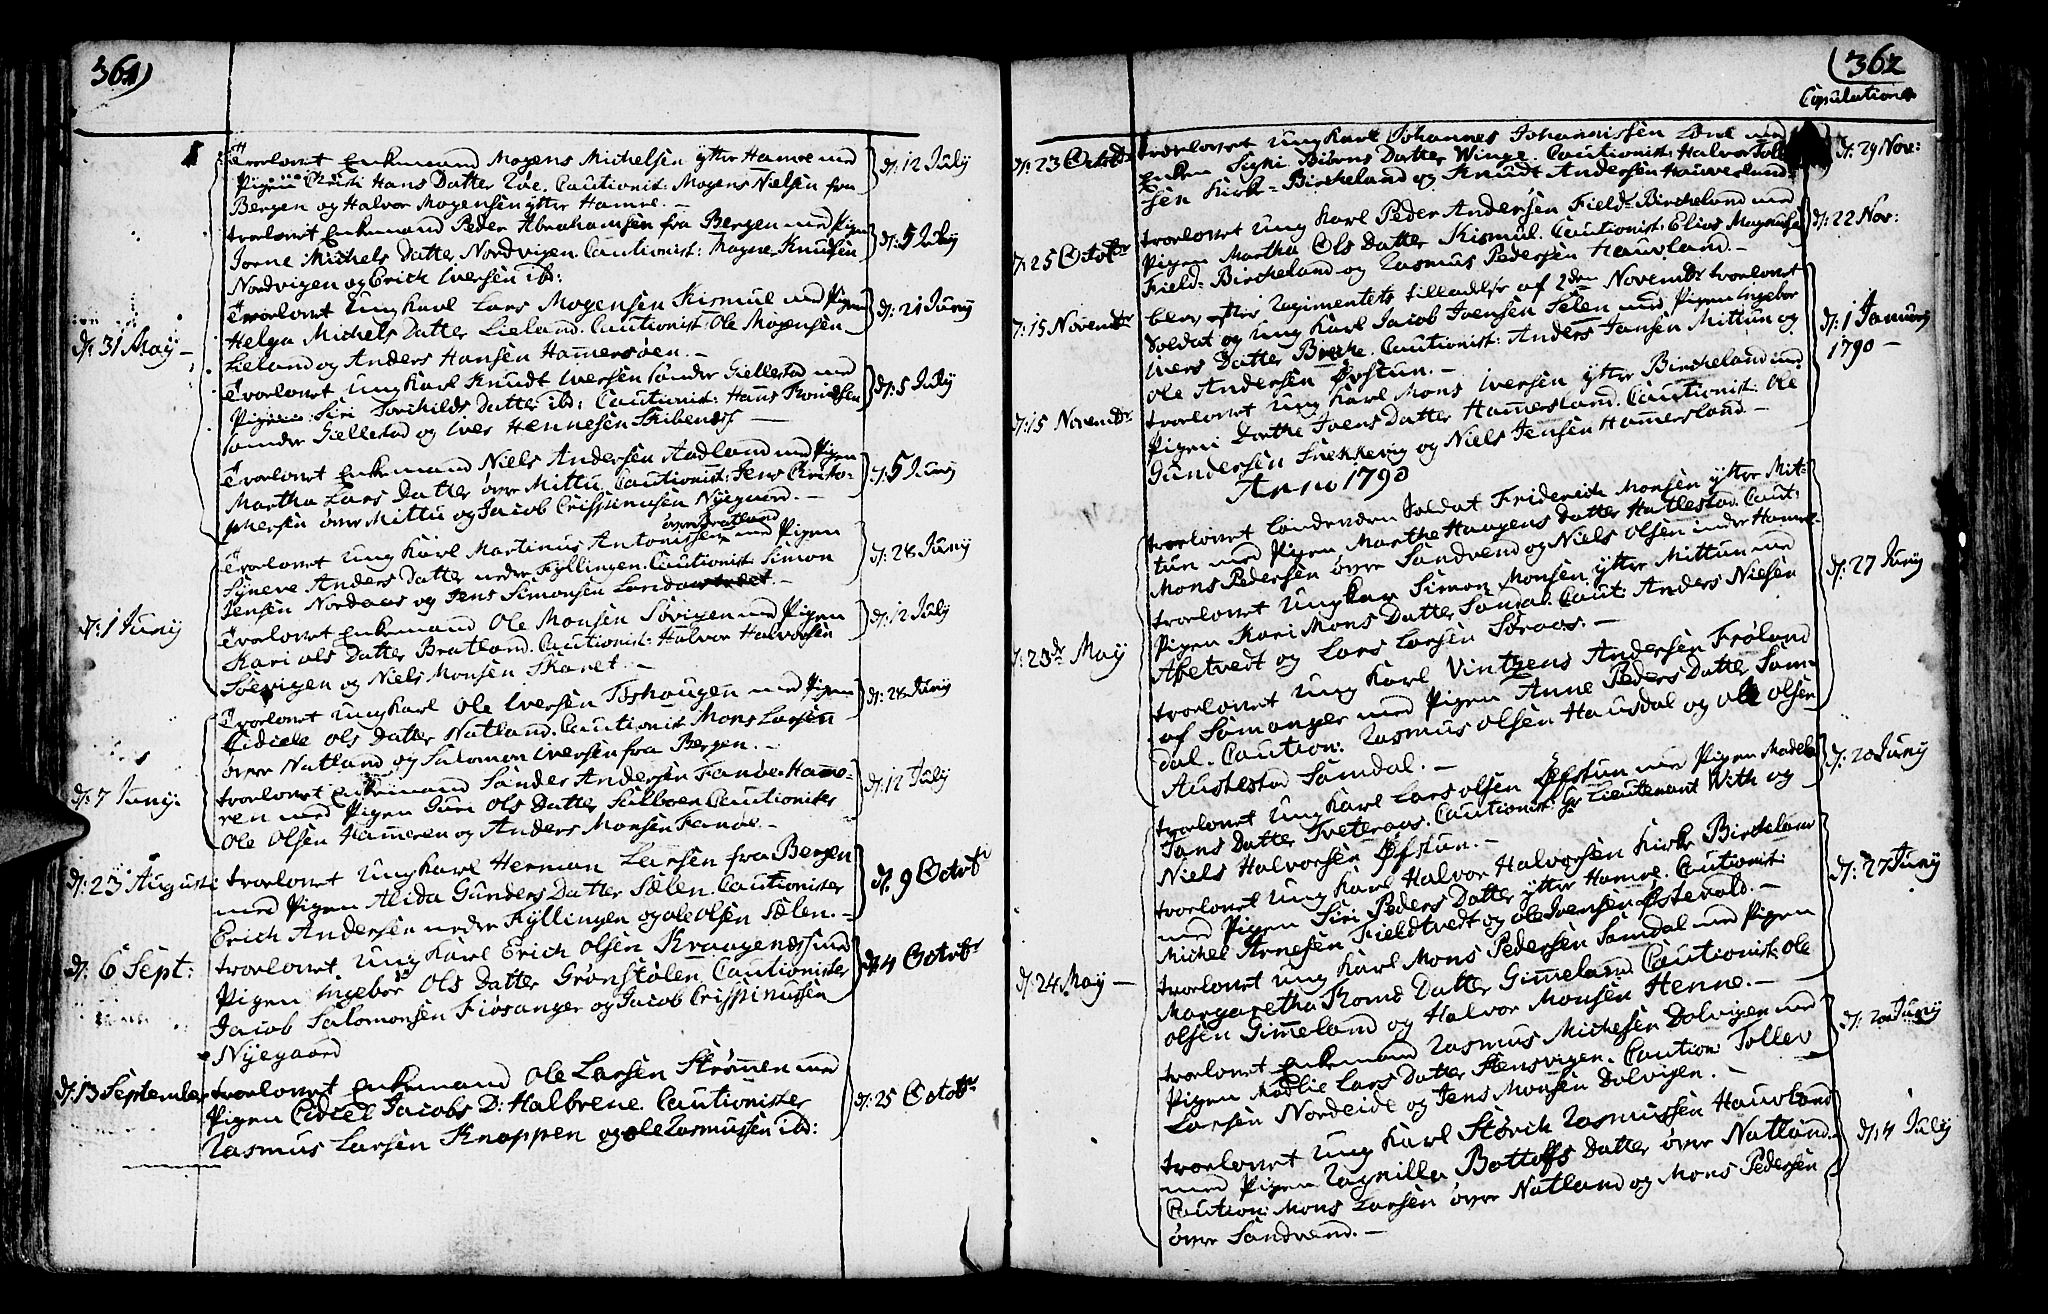 361)
Trolovet Enkemand Mogens Michelsen ytter Hamre med
Pigen Christi Hans Datter Løe. Cautionist: Mogens Nielsen fra
Bergen og Halvor Mogensen ytter Hamre. —
d: 12 July
trolovet Enkemand Peder Abrahamsen fra Bergen med Pigen
Jorne Michels Datter Nordvigen. Cautionist: Magne Knudsen
Nordvigen og Erich Iversen ibd:
d: 5 July
d: 31 May —
Trolovet Ungkarl Lars Mogensen Kismul med Pigen
Helga Michels Datter Lieland. Cautionist: Ole Mogensen
Lieland og Anders Hansen Hammersøen. —
d: 21 Juny
Trolovet Ungkarl Knudt Iversen Sønder Giellestad med
Pigen Siri Torchilds Datter ibd: Cautionist: Hans Knudsen
Sønder Giellestad og Iver Hennesen Skibenes —
d: 5 July
Trolovet Enkemand Niels Andersen Aadland med Pigen
Martha Lars Datter øvre Mittu. Cautionist: Jens Christo-
phersen øvre Mittu og Jacob Crispinusen Nyegaard. —
d: 5 Juny
øvre Bratland
Trolovet Ungkarl Martinus Antonissen med Pigen
Synneve Anders Datter nedre Fyllingen. Cautionist: Simon
Jensen Nordaas og Jens Simonsen —
d: 28 Juny
d: 1 Juny
Trolovet Enkemand Ole Monsen Sørvigen med Pigen
Kari Ols Datter Bratland. Cautionist: Halvor Halvorsen
Søevigen og Niels Monsen Skaret. —
d: 12 July
Trolovet Ungkarl Ole Iversen Toshougen med Pigen
Sidsele Ols Datter Natland. Cautionist Mons Larsen
øvre Natland og Salomon Iversen fra Bergen. —
d: 28 Juny
d: 7 Juny.
trolovet Enkemand Sander Andersen Fanøe Hamme-
ren med Pigen Guri Ols Datter Sulloen. Cautionister
Ole Olsen Hammeren og Anders Monsen Fanøe. —
d: 12 July
d: 23 Augusti
trolovet Ungkarl Herman Larsen fra Bergen
med Pigen Alida Gunders Datter Sælen. Cautionister
Erich Andersen nedre Fyllingen og Ole Olsen Sælen. —
d. 9 Octobr
d: 6 Sept:
trolovet Ungkarl Erich Olsen Kraagenes med
Pigen Ingebor Ols Datter Grønstølen. Cautionister
Jacob Salomonsen Fiøsanger og Jacob Crispinussen
Nyegaard
d: 4 Octobr
d: 13 September
trolovet Enkemand Ole Larsen Strømmen med
Pigen Cidcel Jacobs D: Halbrene. Cautionister
Rasmus Larsen Knappen og Ole Rasmussen ibd:
d: 25 Octobr
(362
Copulationer
d: 23 Octobr
trolovet Ungkarl Johannes Johannissen Løne med
Enken Sigri Biørns Datter Winge. Cautionist: Halvor
sen Kirk-Birckeland og Knudt Andersen Hauverland.
d. 29 Nov:
d: 25 Octobr
trolovet Ungkarl Peder Andersen Field-Birckeland med
Pigen Martha Ols Datter Kismul. Cautionist: Elias Magnusen
Field-Birckeland og Rasmus Pedersen Hauvland. —
d: 22 Nov:
d: 15 Novembr
blev efter Regimentets tilladelse af 2den Novembr trolovet
Soldat og Ungkarl Jacob Joensen Sælen med Pigen Ingebor
Ivers Datter Bircke. Cautionist: Anders Jansen Mittun og
Ole Andersen Øvstun. —
d: 1 January
1790 —
d: 15 Novembr
trolovet Ungkarl Mons Iversen ytter Birckeland med
Pigen Dorthe Joens Datter Hammersland. Cautionist: Ole
Gundersen Smekkevig og Niels Jensen Hammersland. —
Anno 1790
trolovet Landeværn Soldat Friderich Monsen ytter Mit-
tun med Pigen Marthe Haagens Datter Hatlestad. Caut:
Mons Pedersen øvre Sandvend og Niels Olsen indre Hamre
d: 27 Juny
trolovet Ungkar Simon Monsen ytter Mittun med
Pigen Kari Mons Datter Samdal. Caut: Anders Nielsen
Apeltvedt og Lars Larsen Søraas. —
d: 23de May
trolovet Ung Karl Vintzens Andersen Frøland
af Samanger med Pigen Anne Peders Datter Sam-
dal. Caution: Rasmus Olsen Hausdal og Ole Olsen
Austestad Samdal. —
trolovet Ung Karl Lars Olsen Øvstun med Pigen Madele
Jans Datter Tveteraas. Cautionist: Hr Lieutenant With og
Niels Halvorsen Øfstun. —
d: 20 Juny
trolovet Ung Karl Halvor Halvorsen Kirke Birckeland
med Pigen Siri Peders Datter ytter Hamre. Cautionist:
Michel Arnesen Fieldtvedt og Ole Iversen Østevold. —
d: 27 Juny
d: 24 May —
trolovet Ung Karl Mons Pedersen Samdal med Pigen
Margaretha Datter Gimmeland. Cautionist: Ole
Olsen Gimmeland og Halvor Monsen Henne. —
trolovet Enkemand Rasmus Michelsen Dolvigen med
Pigen Madlie Lars Datter Stensvigen. Caution: Tollev
Larsen Nordeide og Jens Monsen Dolvigen. —
d: 20 Juny
trolovet Ung Karl Størck Rasmussen Hauvland
med Pigen Ragnilla Bottolfs Datter øvre Natland.
Caution: Mons Larsen øvre Natland og Mons Pedersen
øvre Sandvend. —
d: 4 July